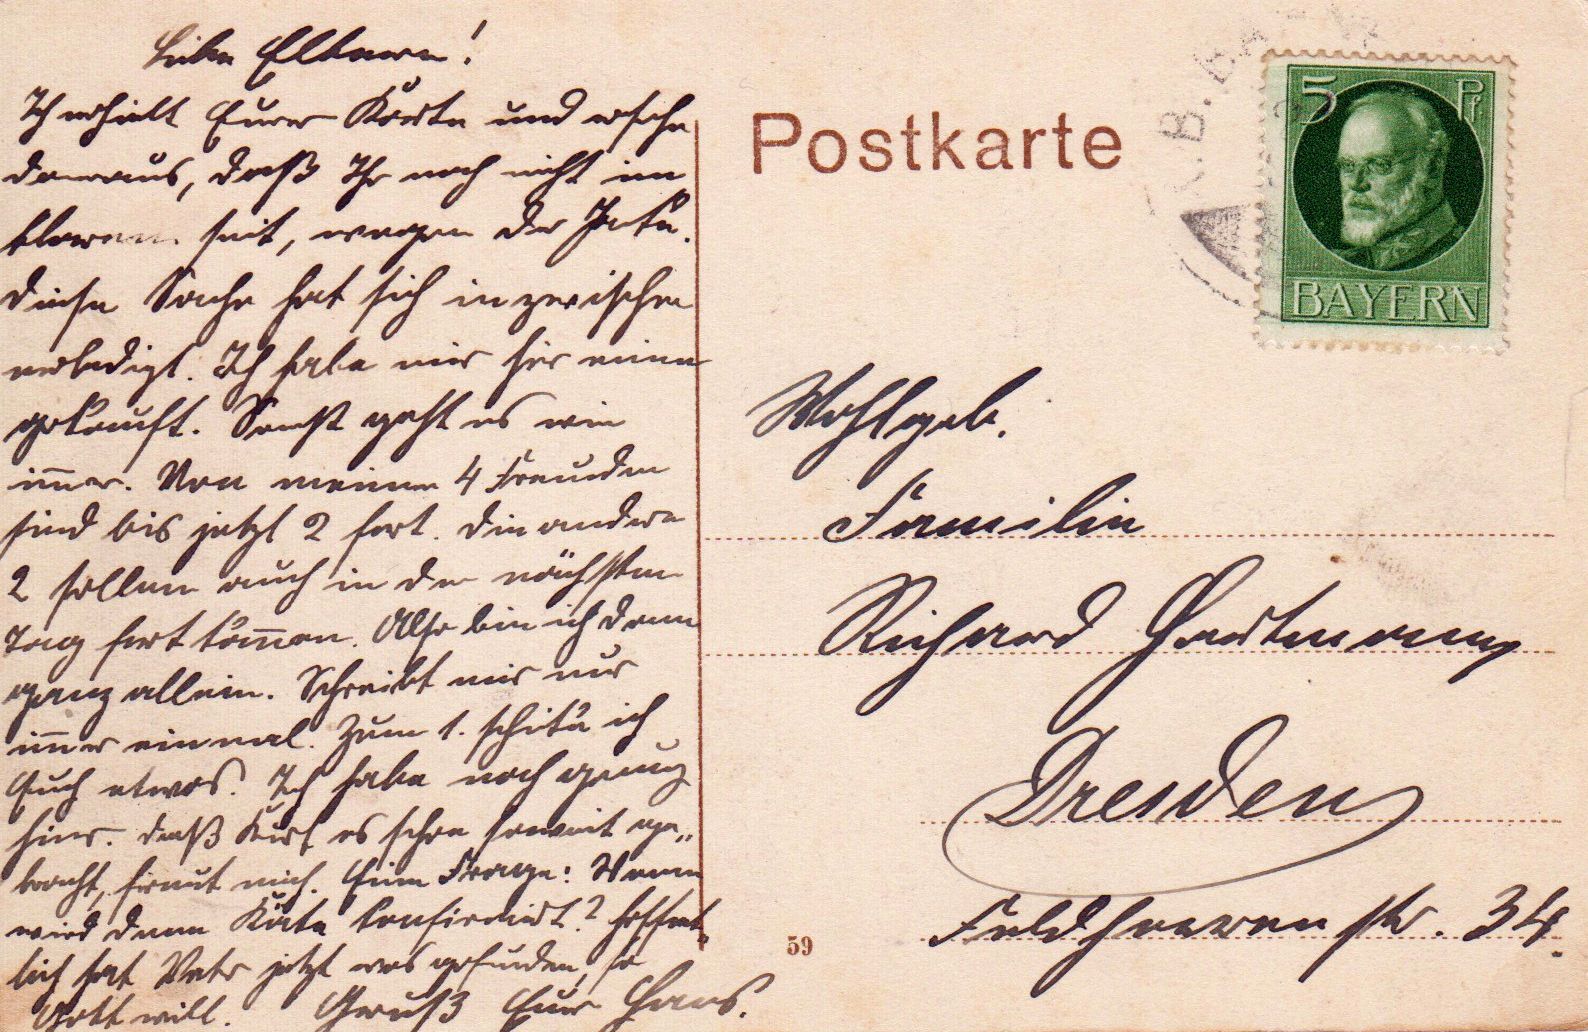 Liebe Eltern!
Ich erhielt Eure Karte und ersehe
daraus, daß Ihr noch nicht im
klaren seit, wegen der Jacke.
Diese Sache hat sich inzwischen
erledigt. Ich habe mir hir eine
gekauft. Sonst geht es wie
im̅er. Von meinen 4 Freunden
sind bis jetzt 2 fort. Die andere
2 sollen auch in den nächsten
Tag fort kom̅en. Also bin ich dann
ganz allein. Schreibt mir nur
im̅er einmal. Zum 1. schicke ich
Euch etwas. Ich habe noch genug
hier. Daß Kurt es schon soweit ge„
bracht, freut mich. Eine Frage: Wann
wird denn Käte konfirmirt? Hoffent„
lich hat Vater jetzt was gefunden, so
Gott will. Gruß Euer Hans.
Postkarte
K.B.BA
5 Pf
BAYERN
Wohlgeb.
Familie
Richard Hartmann
Dresden
Feldherrenstr. 34.
59